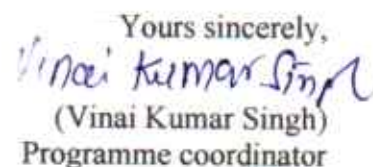 Yours sincerely,
Vinai Kumar Singh
(Vinai Kumar Singh)
Programme coordinator